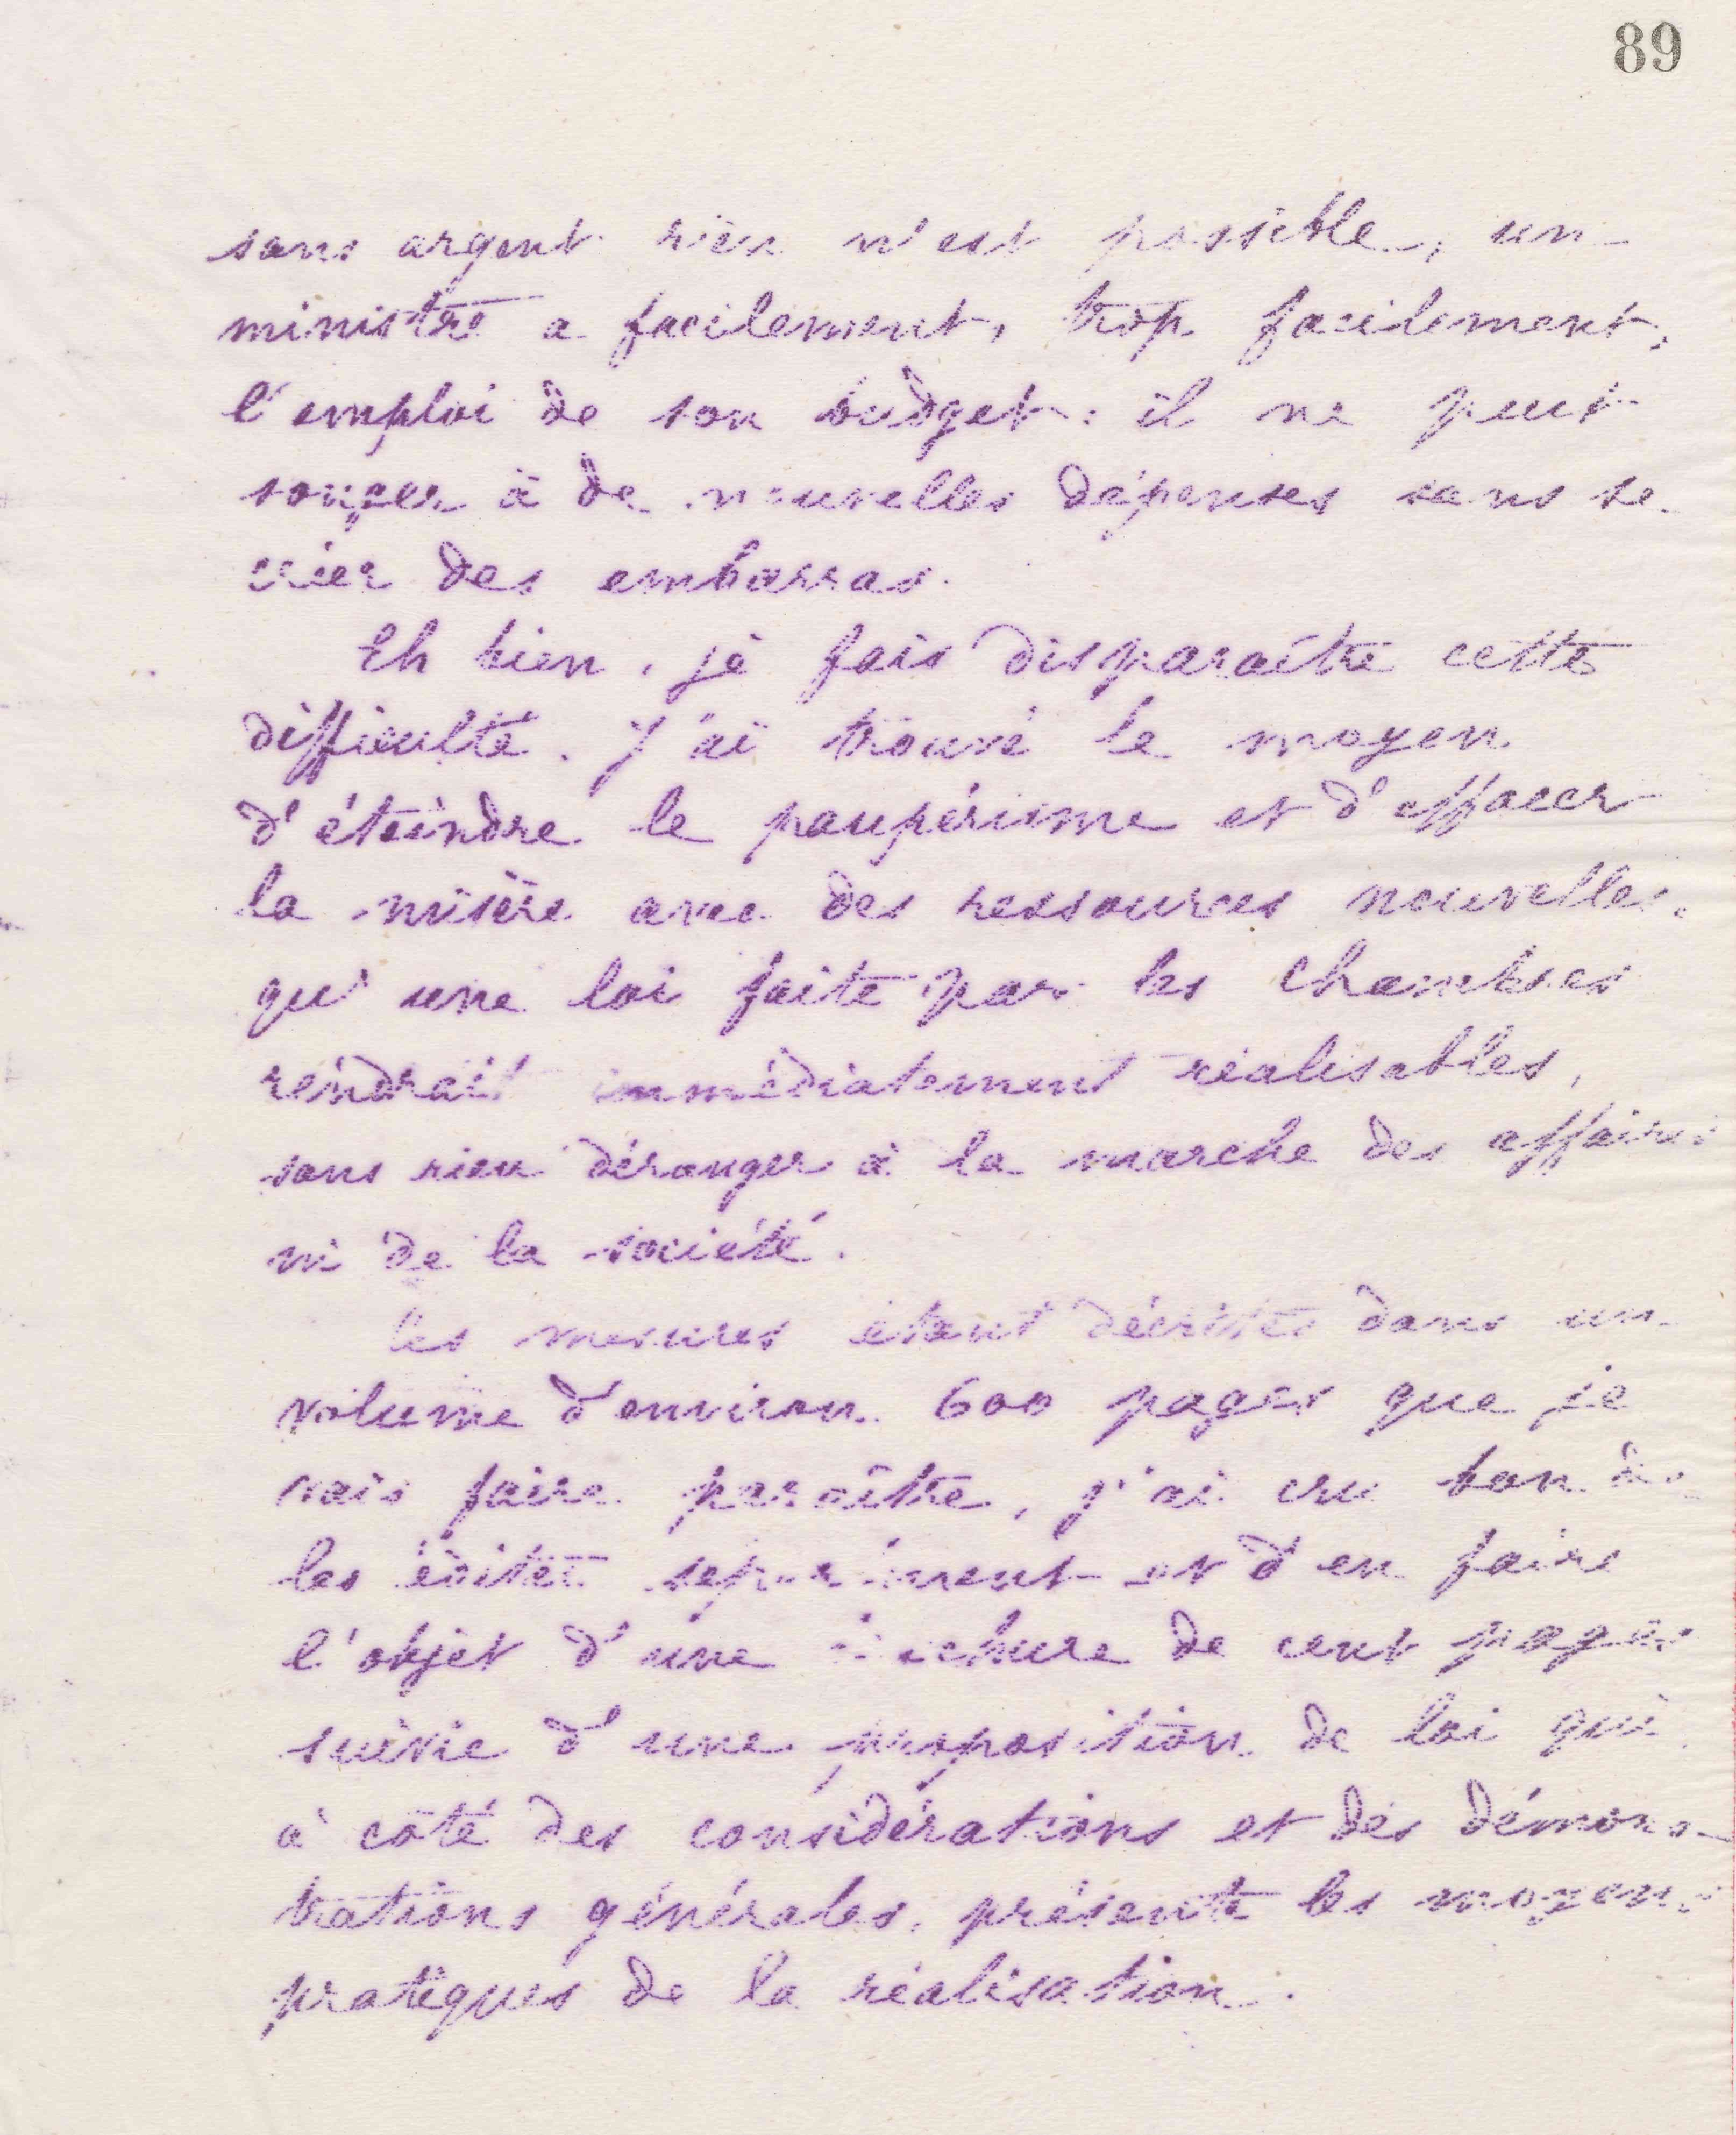 89
sans argent rien n'est possible, un
ministre a facilement, trop facilement,
l'emploi de son budget : il ne peut
songer à de nouvelles dépenses sans se
créer des embarras.
Eh bien, je fais disparaître cette
difficulté. J'ai trouvé le moyen
d'éteindre le paupérisme et d'effacer
la misère avec des ressources nouvelles
qu'une loi faite par les Chambres
rendrait immédiatement réalisables,
sans rien déranger à la marche des affaires
ni de la société.
Les mesures étant décrites dans un
volume d'environ 600 pages que je
vais faire paraître, j'ai cru bon de
les éditer séparément et d'en faire
l'objet d'une brochure de cent pages
suivie d'une proposition de loi qui
à côté des considérations et des démons-
trations générales, présente les moyens
pratiques de la réalisation.